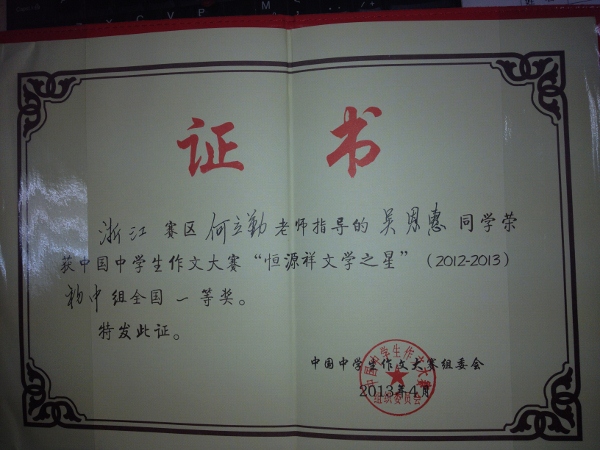 证 书
浙江 赛区 何立勤 老师指导的 吴恩惠 同学荣
获中国中学生作文大赛“恒源祥文学之星”(2012-2013)
初中 组全国 一 等奖。
特发此证。
中国中学生作文大赛组委会
2013年4月
中国中学生作文大赛
组织委员会